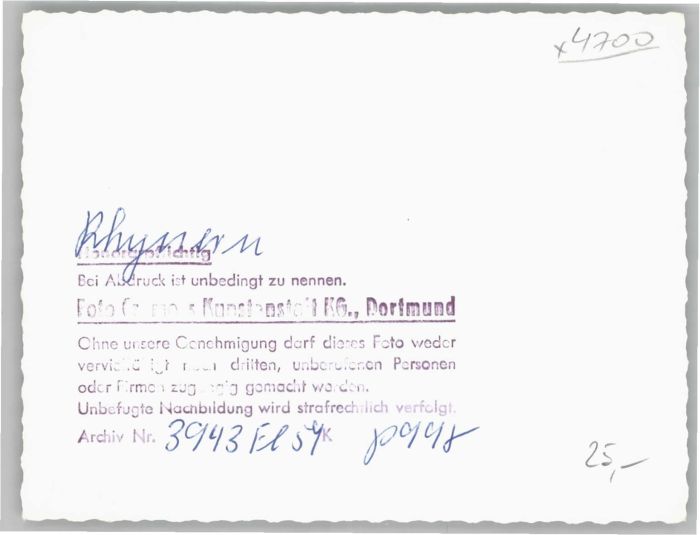 x4700
Rhynern
Honorarpflichtig
Bei Abdruck ist unbedingt zu nennen.
Foto Kunstanstalt KG., Dortmund
Ohne unsere Genehmigung darf dieses Foto weder
vervielfältigt noch dritten, unberufenen Personen
oder Firmen zugängig gemacht werden.
Unbefugte Nachbildung wird strafrechtlich verfolgt.
Archiv Nr. 3943 El 54 K p998
25,-